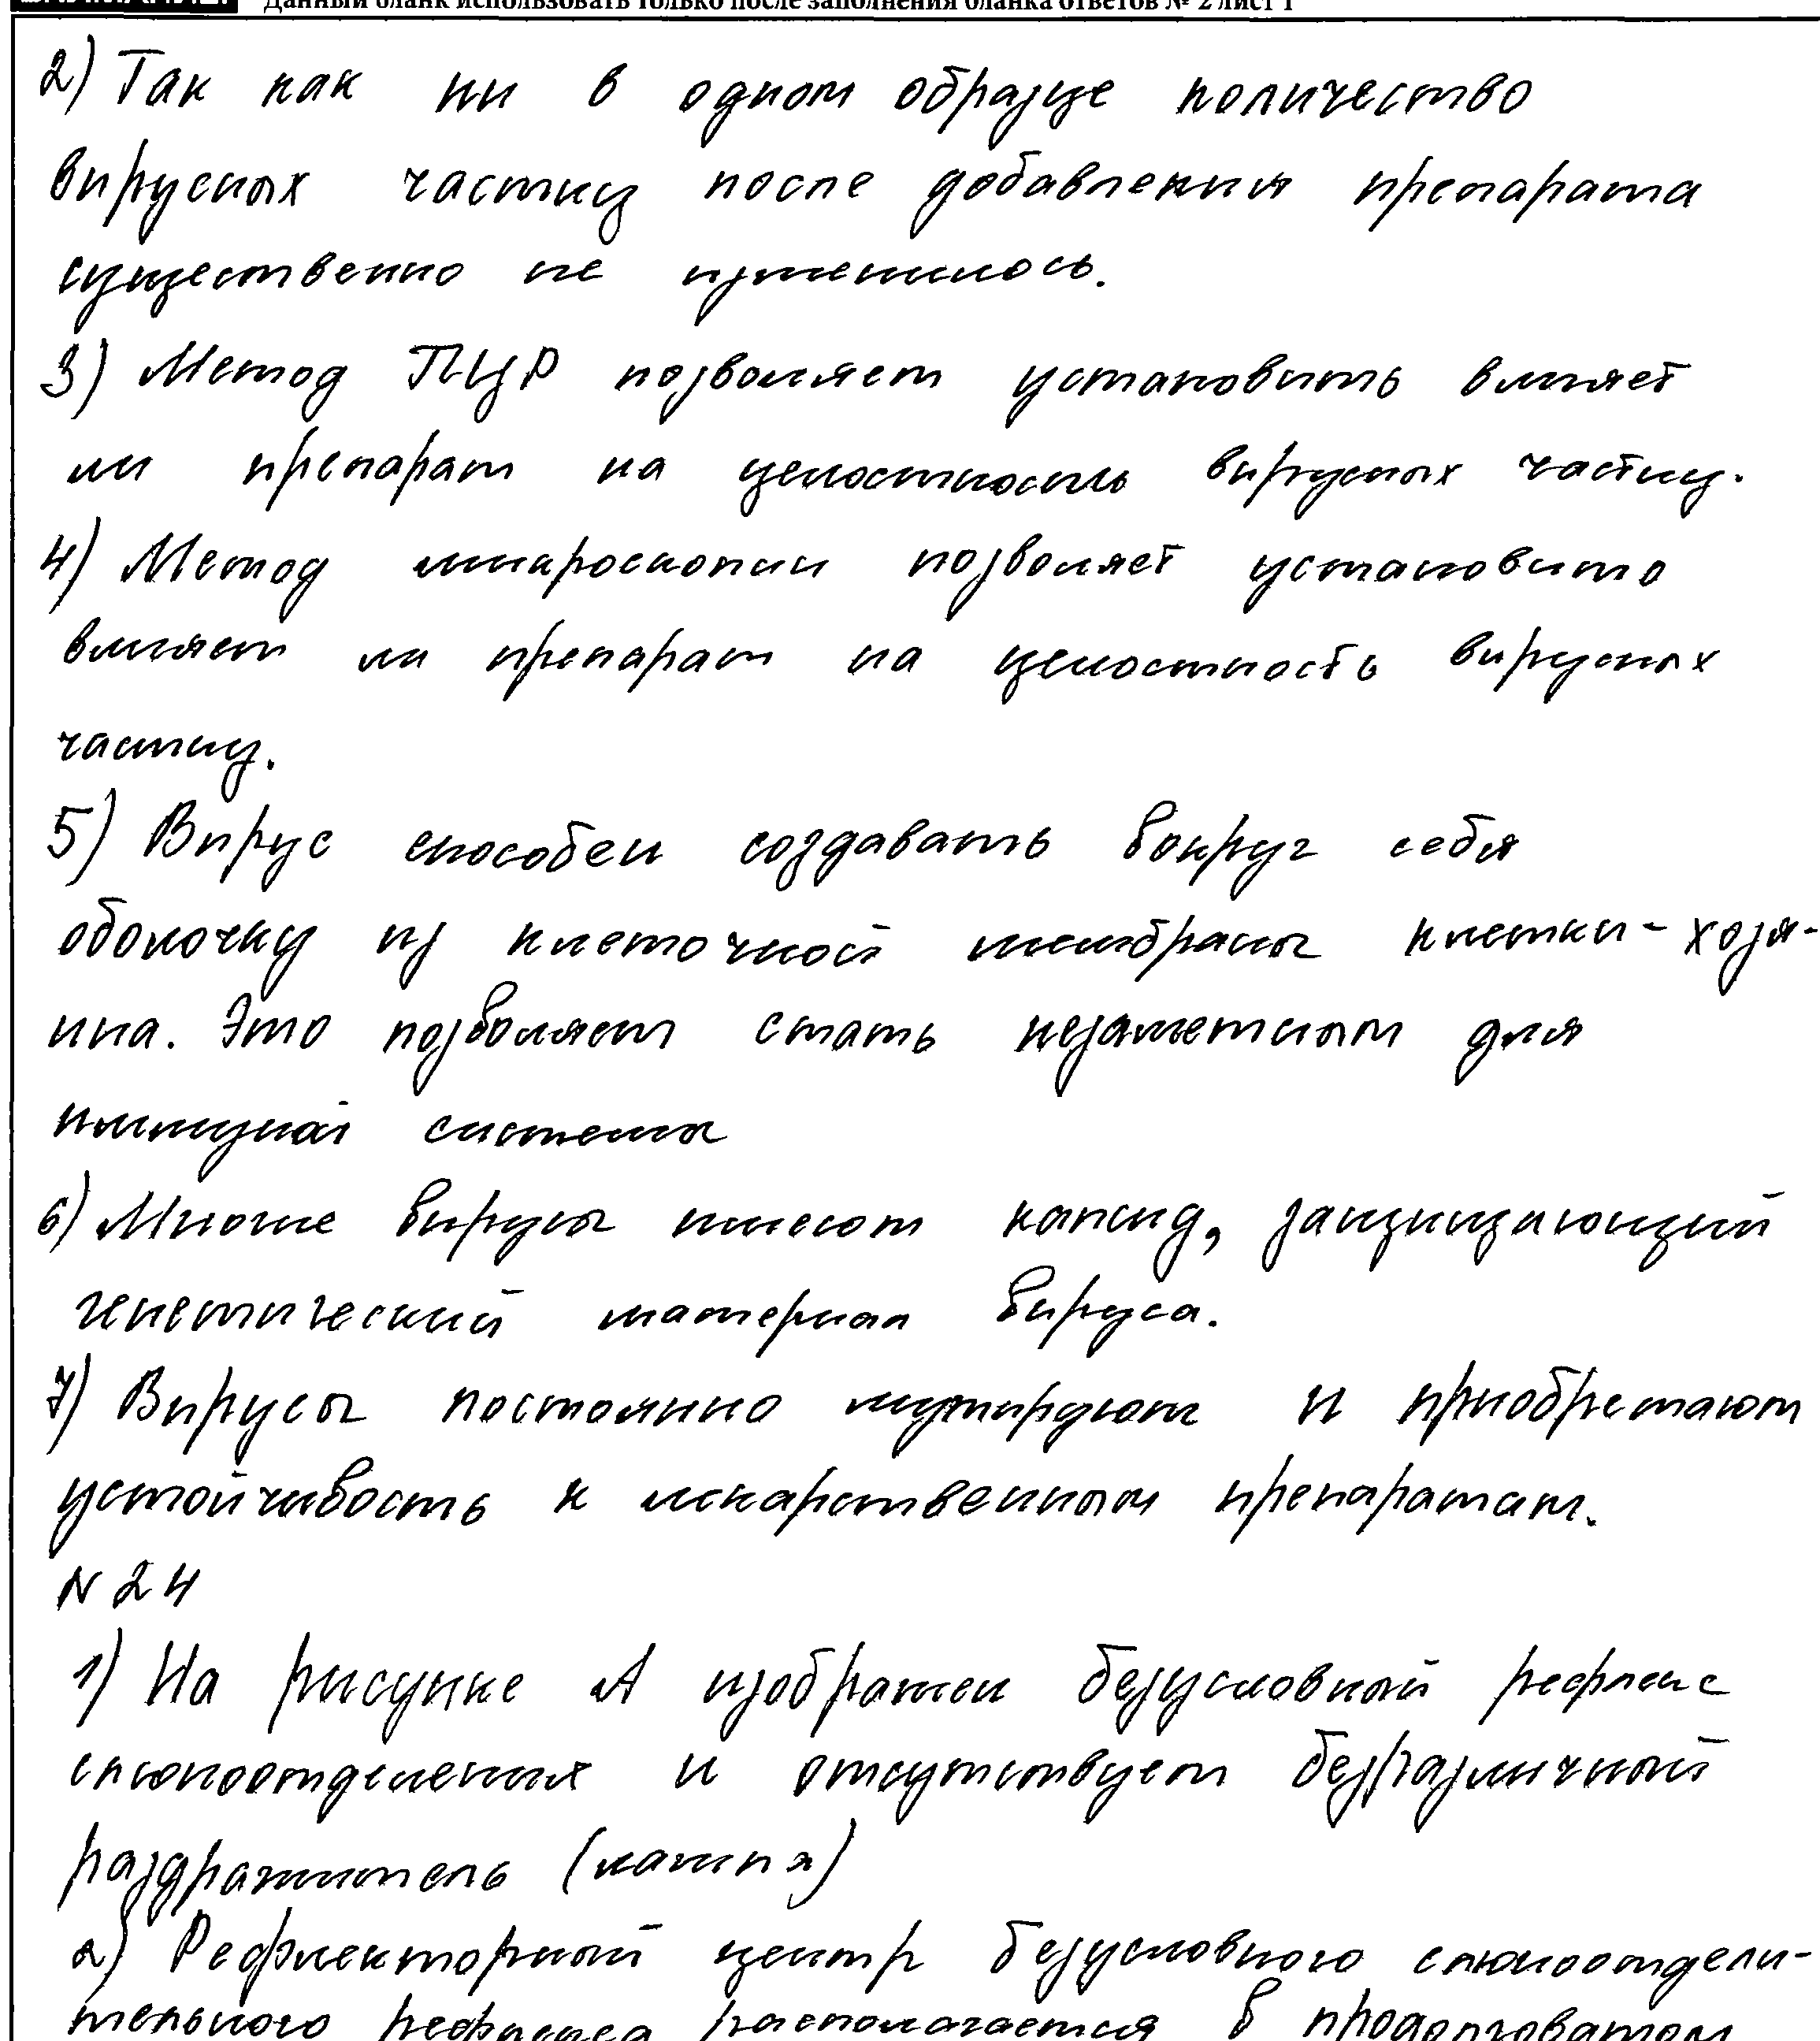 Данный бланк использовать только после заполнения бланка ответов № 2 лист 1
2) Так как ни в одном образце количество
вирусных частиц после добавления препарата
существенно не изменилось.
3) Метод ПЦР позволяет установить влияет
ли препарат на целостность вирусных частиц.
4) Метод микроскопии позволяет установить
влияет ли препарат на целостность вирусных
частиц.
5) Вирус способен создавать вокруг себя
оболочку из клеточной мембраны клетки-хозя-
ина. Это позволяет стать незаметным для
иммуной системы
6) Многие вирусы имеют капсид, защищающий
генетический материал вируса.
7) Вирусы постоянно мутируют и приобретают
устойчивость к лекарственным препаратам.
N 24
1) На рисунке А изображен безусловный рефлекс
слюноотделения и отсутствует безразличный
раздражитель (лампа)
2) Рефлекторный центр безусловного слюноотдели-
тельного рефлекса располагается в продолговатом